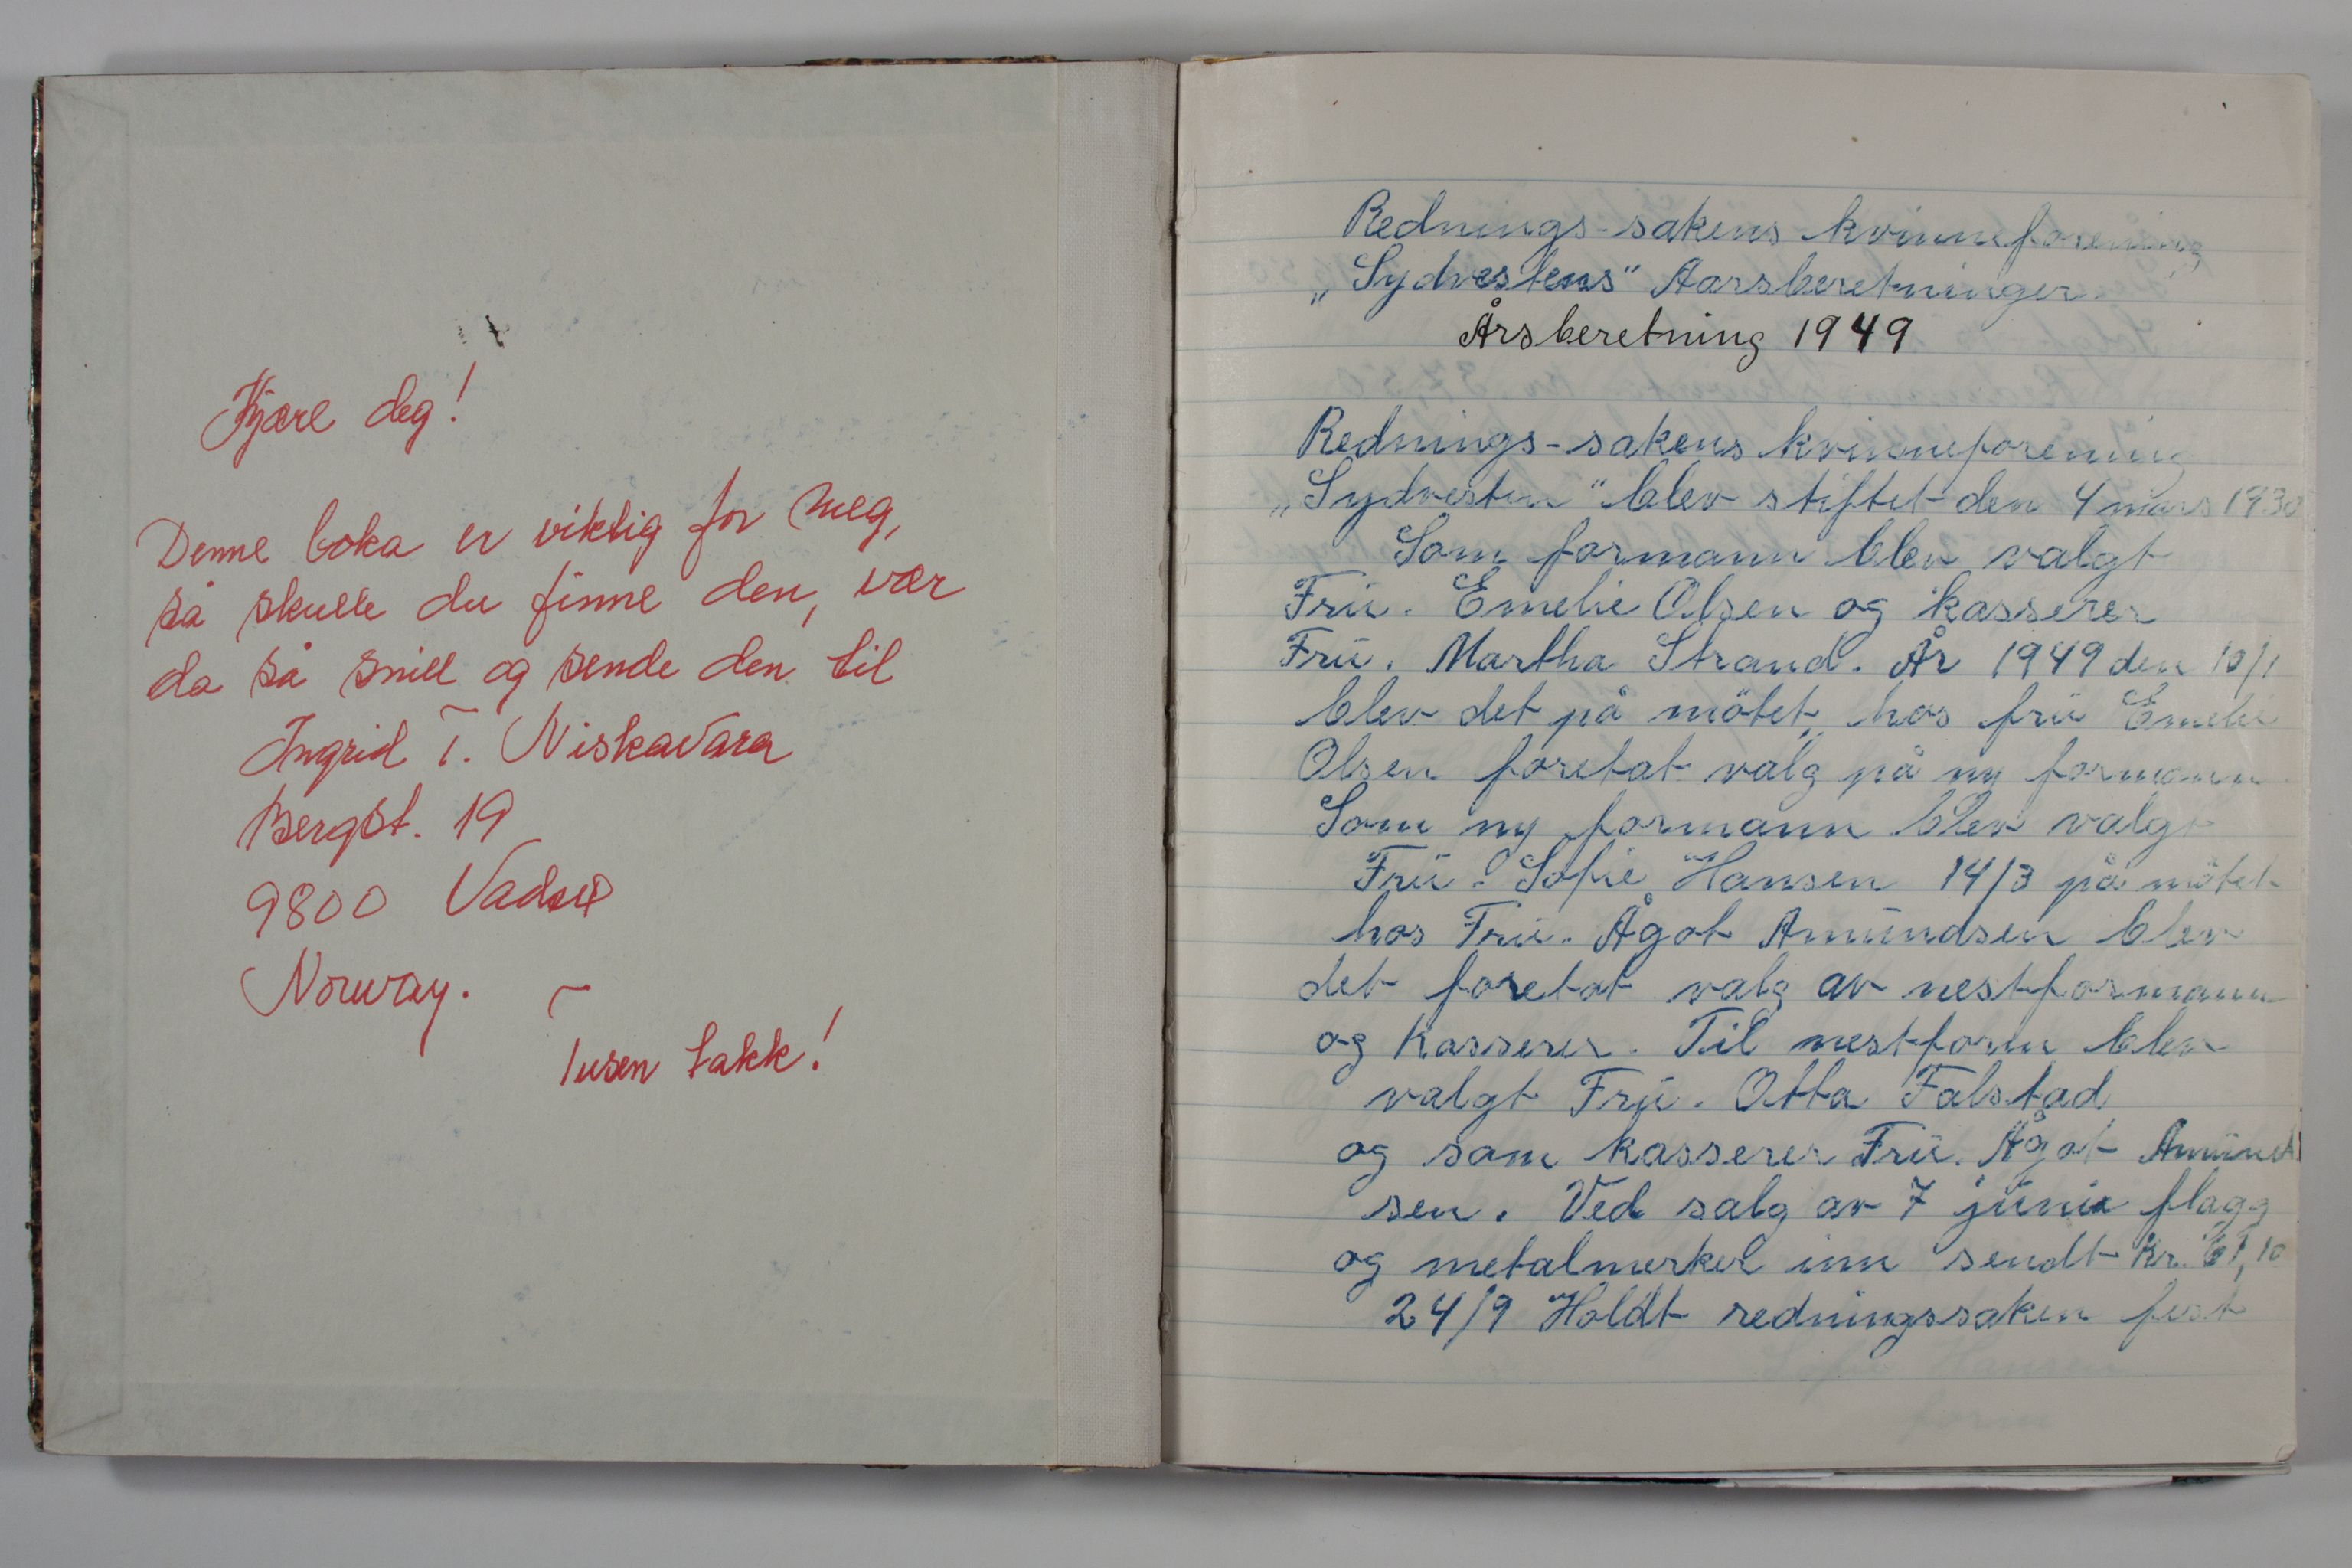 Kjære deg!
Denne boka er viktig for meg,
så skulle du finne den, vær
da så snill og sende den til
Ingrid T. Niskavara
Bergst. 19
9800 Vadsø
Norway.
Tusen takk!
Rednings-sakens kvinneforening
„Sydvestens" Aarsberetninger.
Årsberetning 1949
Rednings-sakens kvinneforening
„Sydvesten" blev stiftet den 4 mars 1930
Som formann blev valgt
Frü. Emelie Olsen og kasserer
Frü. Martha Strand. År 1949 den 10/1
blev det på mötet hos frü Emelie
Olsen foretat valg på ny formann
Som ny formann blev valgt
Frü. Sofie Hansen 14/3 på mötet
hos Frü. Ågot Amündsen blev
det foretat valg av nestformann
og Kasserer. Til nestform blev
valgt Frü. Otta Falstad
og som kasserer Frü. Ågot Amünd
sen. Ved salg av 7 jüni flagg
og metalmerker inn sendt kr.
24/9 Holdt redningssaken fest